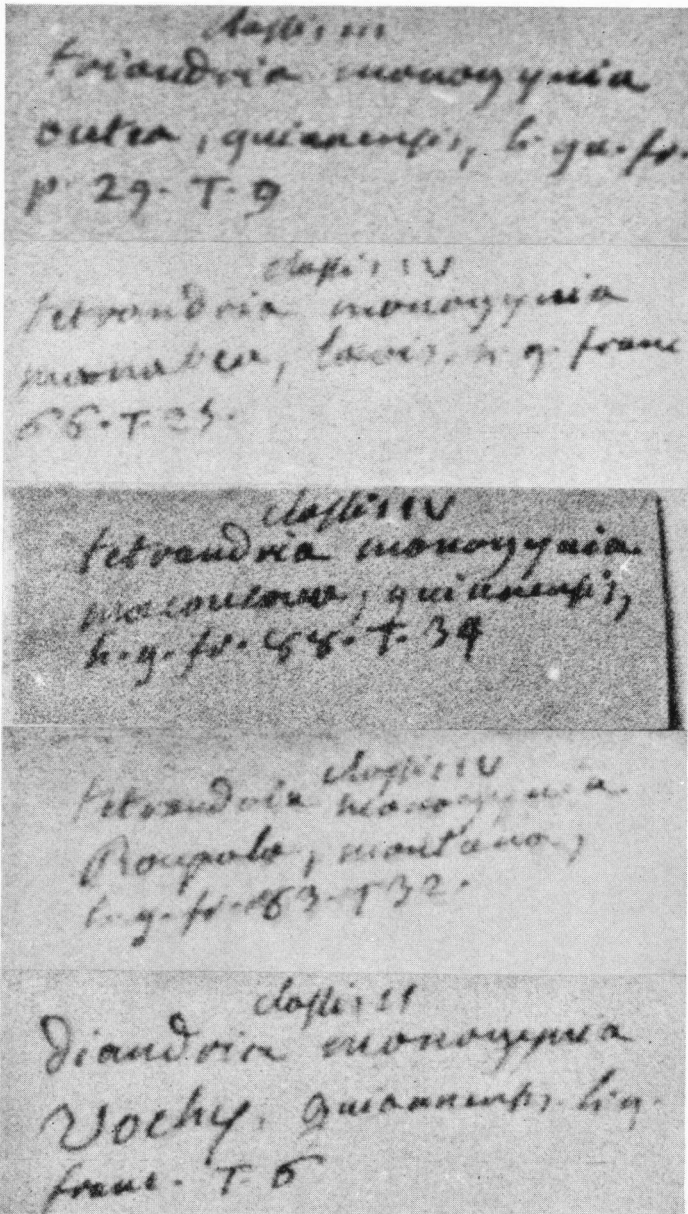 classis III
triandria monogynia
outea, guianensis, h. gu. fr.
p. 29. T. 9
classis IV
tetrandria monogynia
manabea, laevis. h. g. franc
66. T. 25.
classis IV
tetrandria monogynia.
macoucoua, guianensis,
h. g. fr. 88. T. 34
classis IV
tetrandria monogynia
Roupala, montana,
h. g. fr. 83. T 32.
classis II
diandria monogynia
Vochy, guianensis. h. g.
franc. T. 6